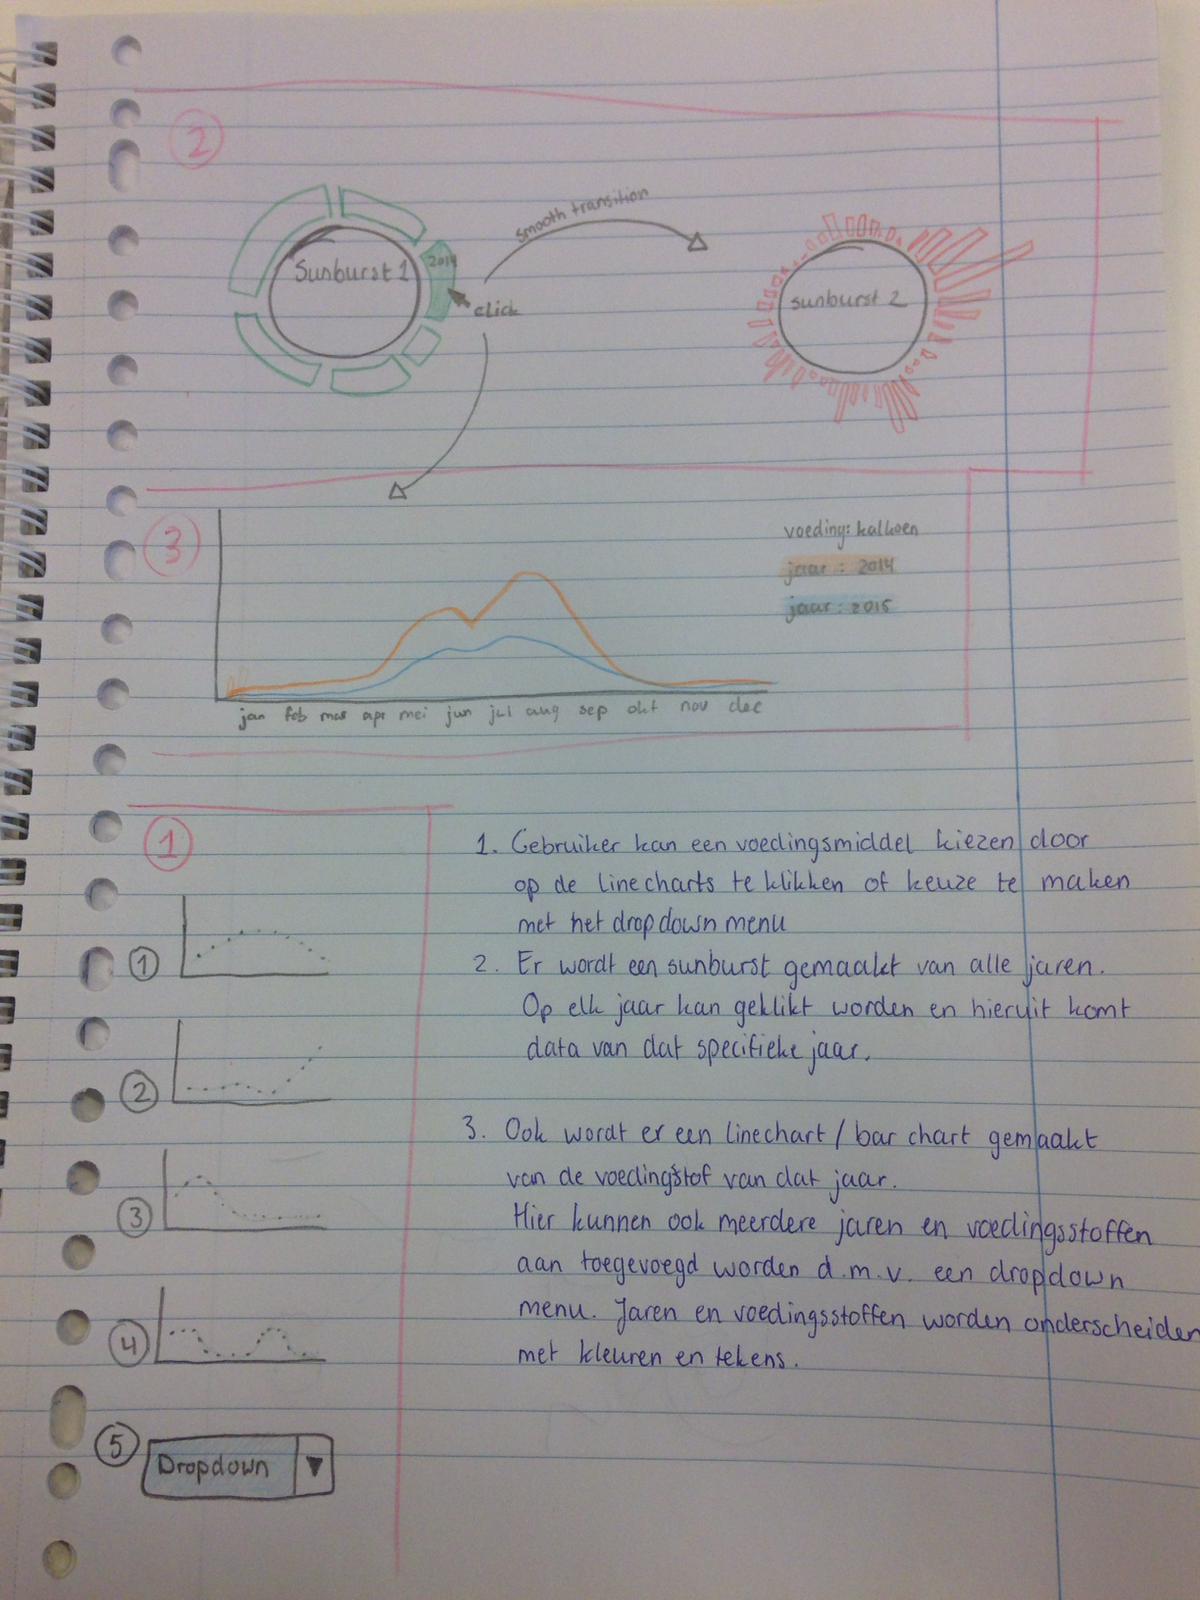 2
Sunburst 1
2014
click
smooth transition
sunburst 2
3
voeding: kalkoen
jaar : 2014
jaar : 2015
jan feb mar apr mei jun jul aug sep okt nov dec
1
1
2
3
4
5
Dropdown ▼
1. Gebruiker kan een voedingsmiddel kiezen door
op de linecharts te klikken of keuze te maken
met het dropdown menu
2. Er wordt een sunburst gemaakt van alle jaren.
Op elk jaar kan geklikt worden en hieruit komt
data van dat specifieke jaar.
3. Ook wordt er een linechart / bar chart gemaakt
van de voedingstof van dat jaar.
Hier kunnen ook meerdere jaren en voedingsstoffen
aan toegevoegd worden d.m.v. een dropdown
menu. Jaren en voedingsstoffen worden onderscheiden
met kleuren en tekens.